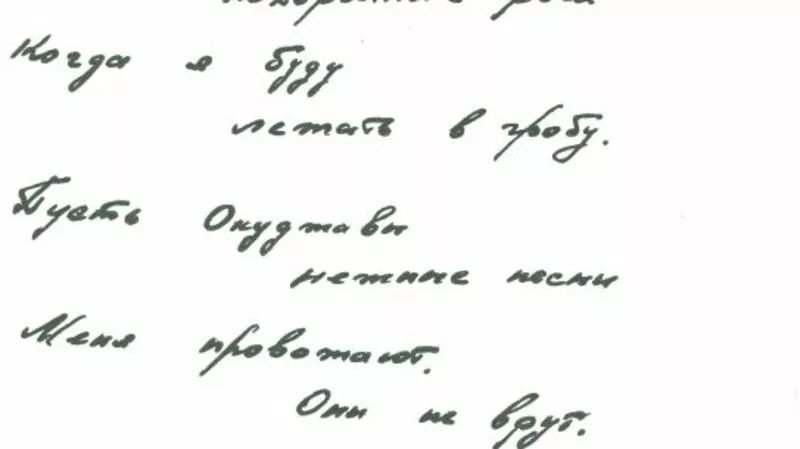 Когда я буду
лежать в гробу.
Пусть Окуджавы
нежные песни
Меня провожают.
Они не врут.